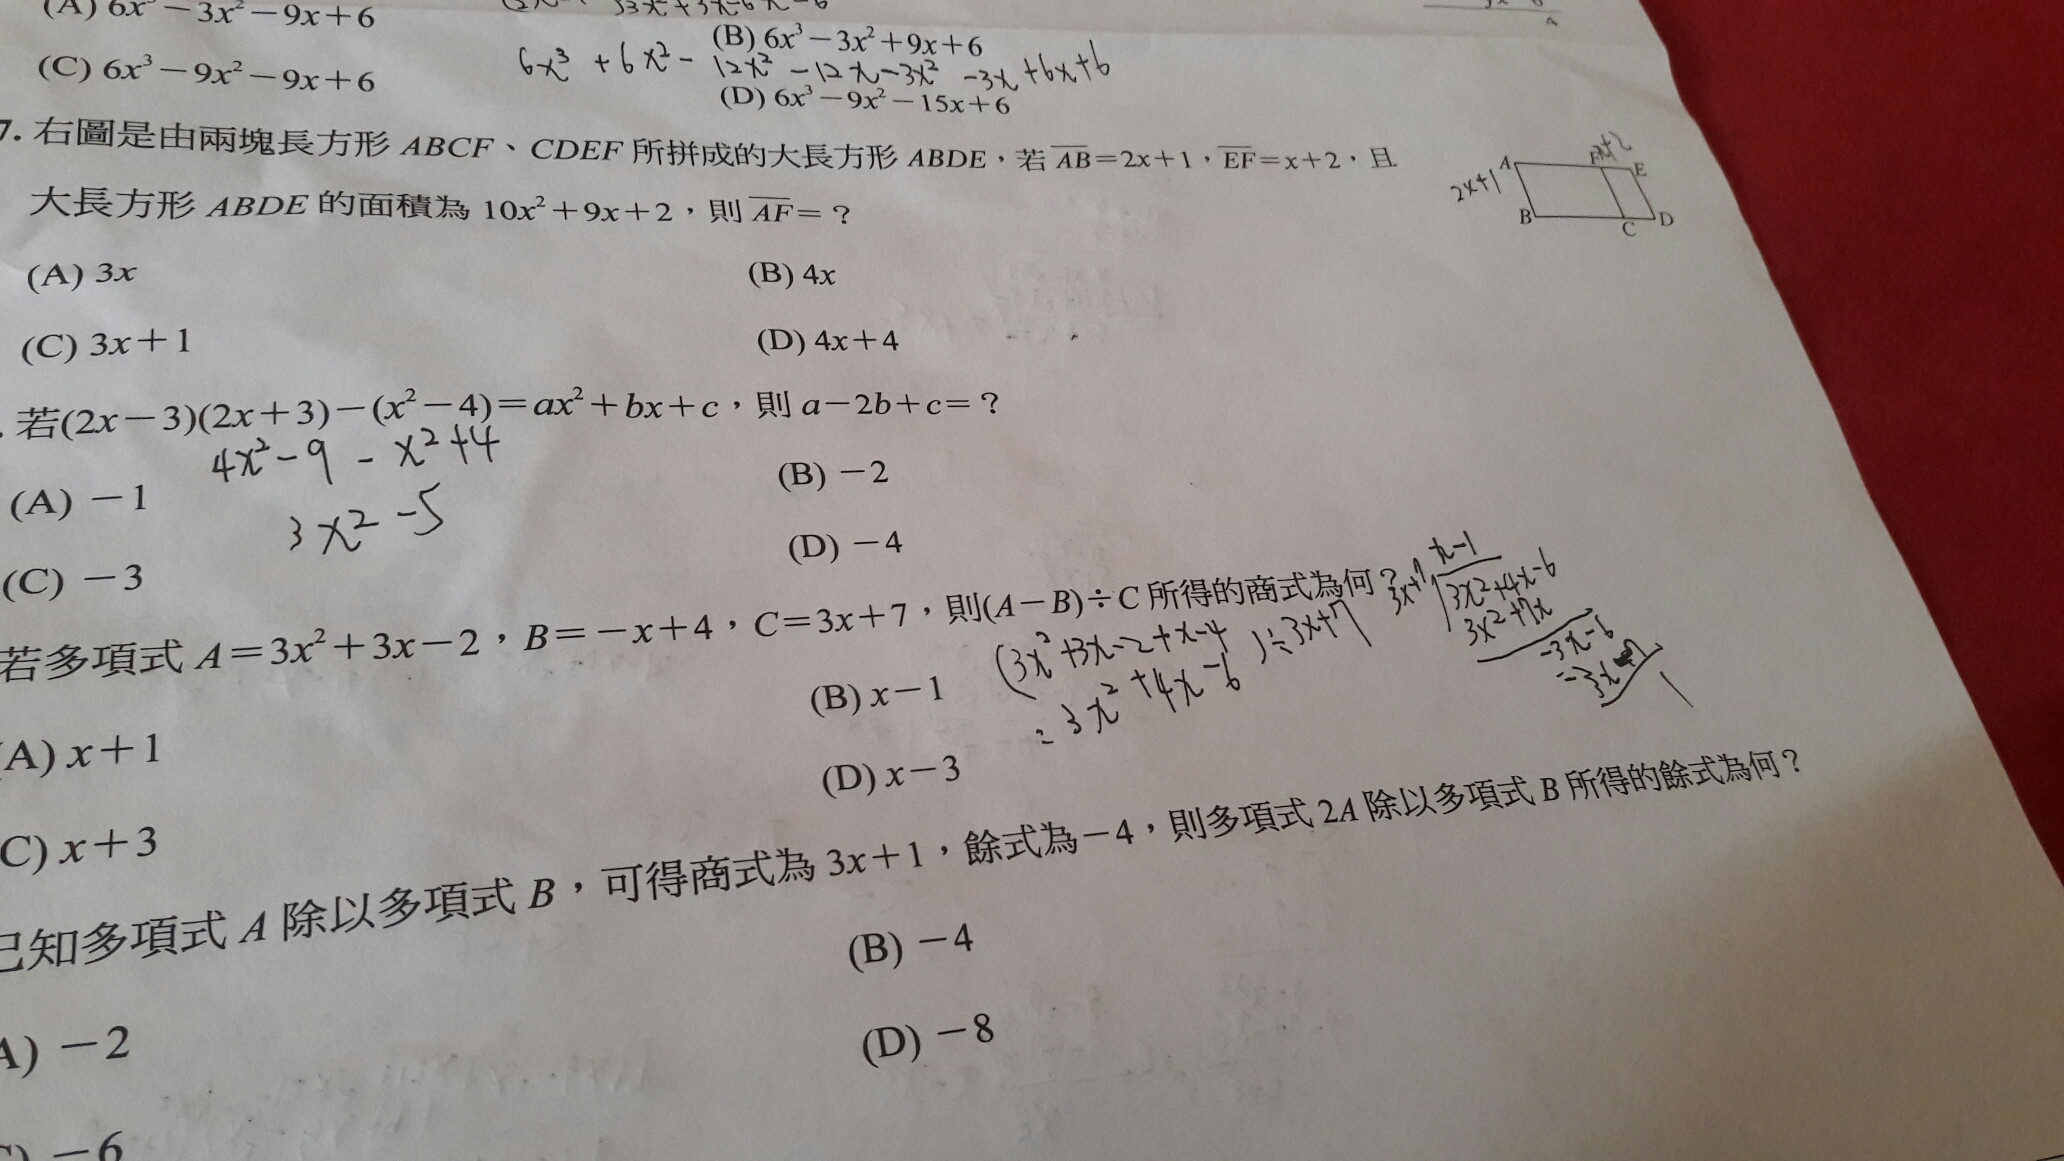 (A) 6x³－3x²－9x＋6
(B) 6x³－3x²＋9x＋6
6x³ +6x²- 12x² -12x-3x² -3x+6x+6
(C) 6x³－9x²－9x＋6
(D) 6x³－9x²－15x＋6
7. 右圖是由兩塊長方形 ABCF、CDEF 所拼成的大長方形 ABDE，若 A̅B̅＝2x＋1，E̅F̅＝x＋2，且
大長方形 ABDE 的面積為 10x²＋9x＋2，則 A̅F̅＝？
A F E
x+2
2x+1
B C D
(A) 3x
(B) 4x
(C) 3x＋1
(D) 4x＋4
若(2x－3)(2x＋3)－(x²－4)＝ax²＋bx＋c，則 a－2b＋c＝？
4x²-9 - x²+4
3x² -5
(A) －1
(B) －2
(C) －3
(D) －4
若多項式 A＝3x²＋3x－2，B＝－x＋4，C＝3x＋7，則(A－B)÷C 所得的商式為何？
(3x²+3x-2+x-4)÷3x+7
=3x²+4x-6
x-1
3x+7 3x²+4x-6
3x²+7x
-3x-6
(A) x＋1
(B) x－1
(C) x＋3
(D) x－3
已知多項式 A 除以多項式 B，可得商式為 3x＋1，餘式為－4，則多項式 2A 除以多項式 B 所得的餘式為何？
A) －2
(B) －4
－6
(D) －8